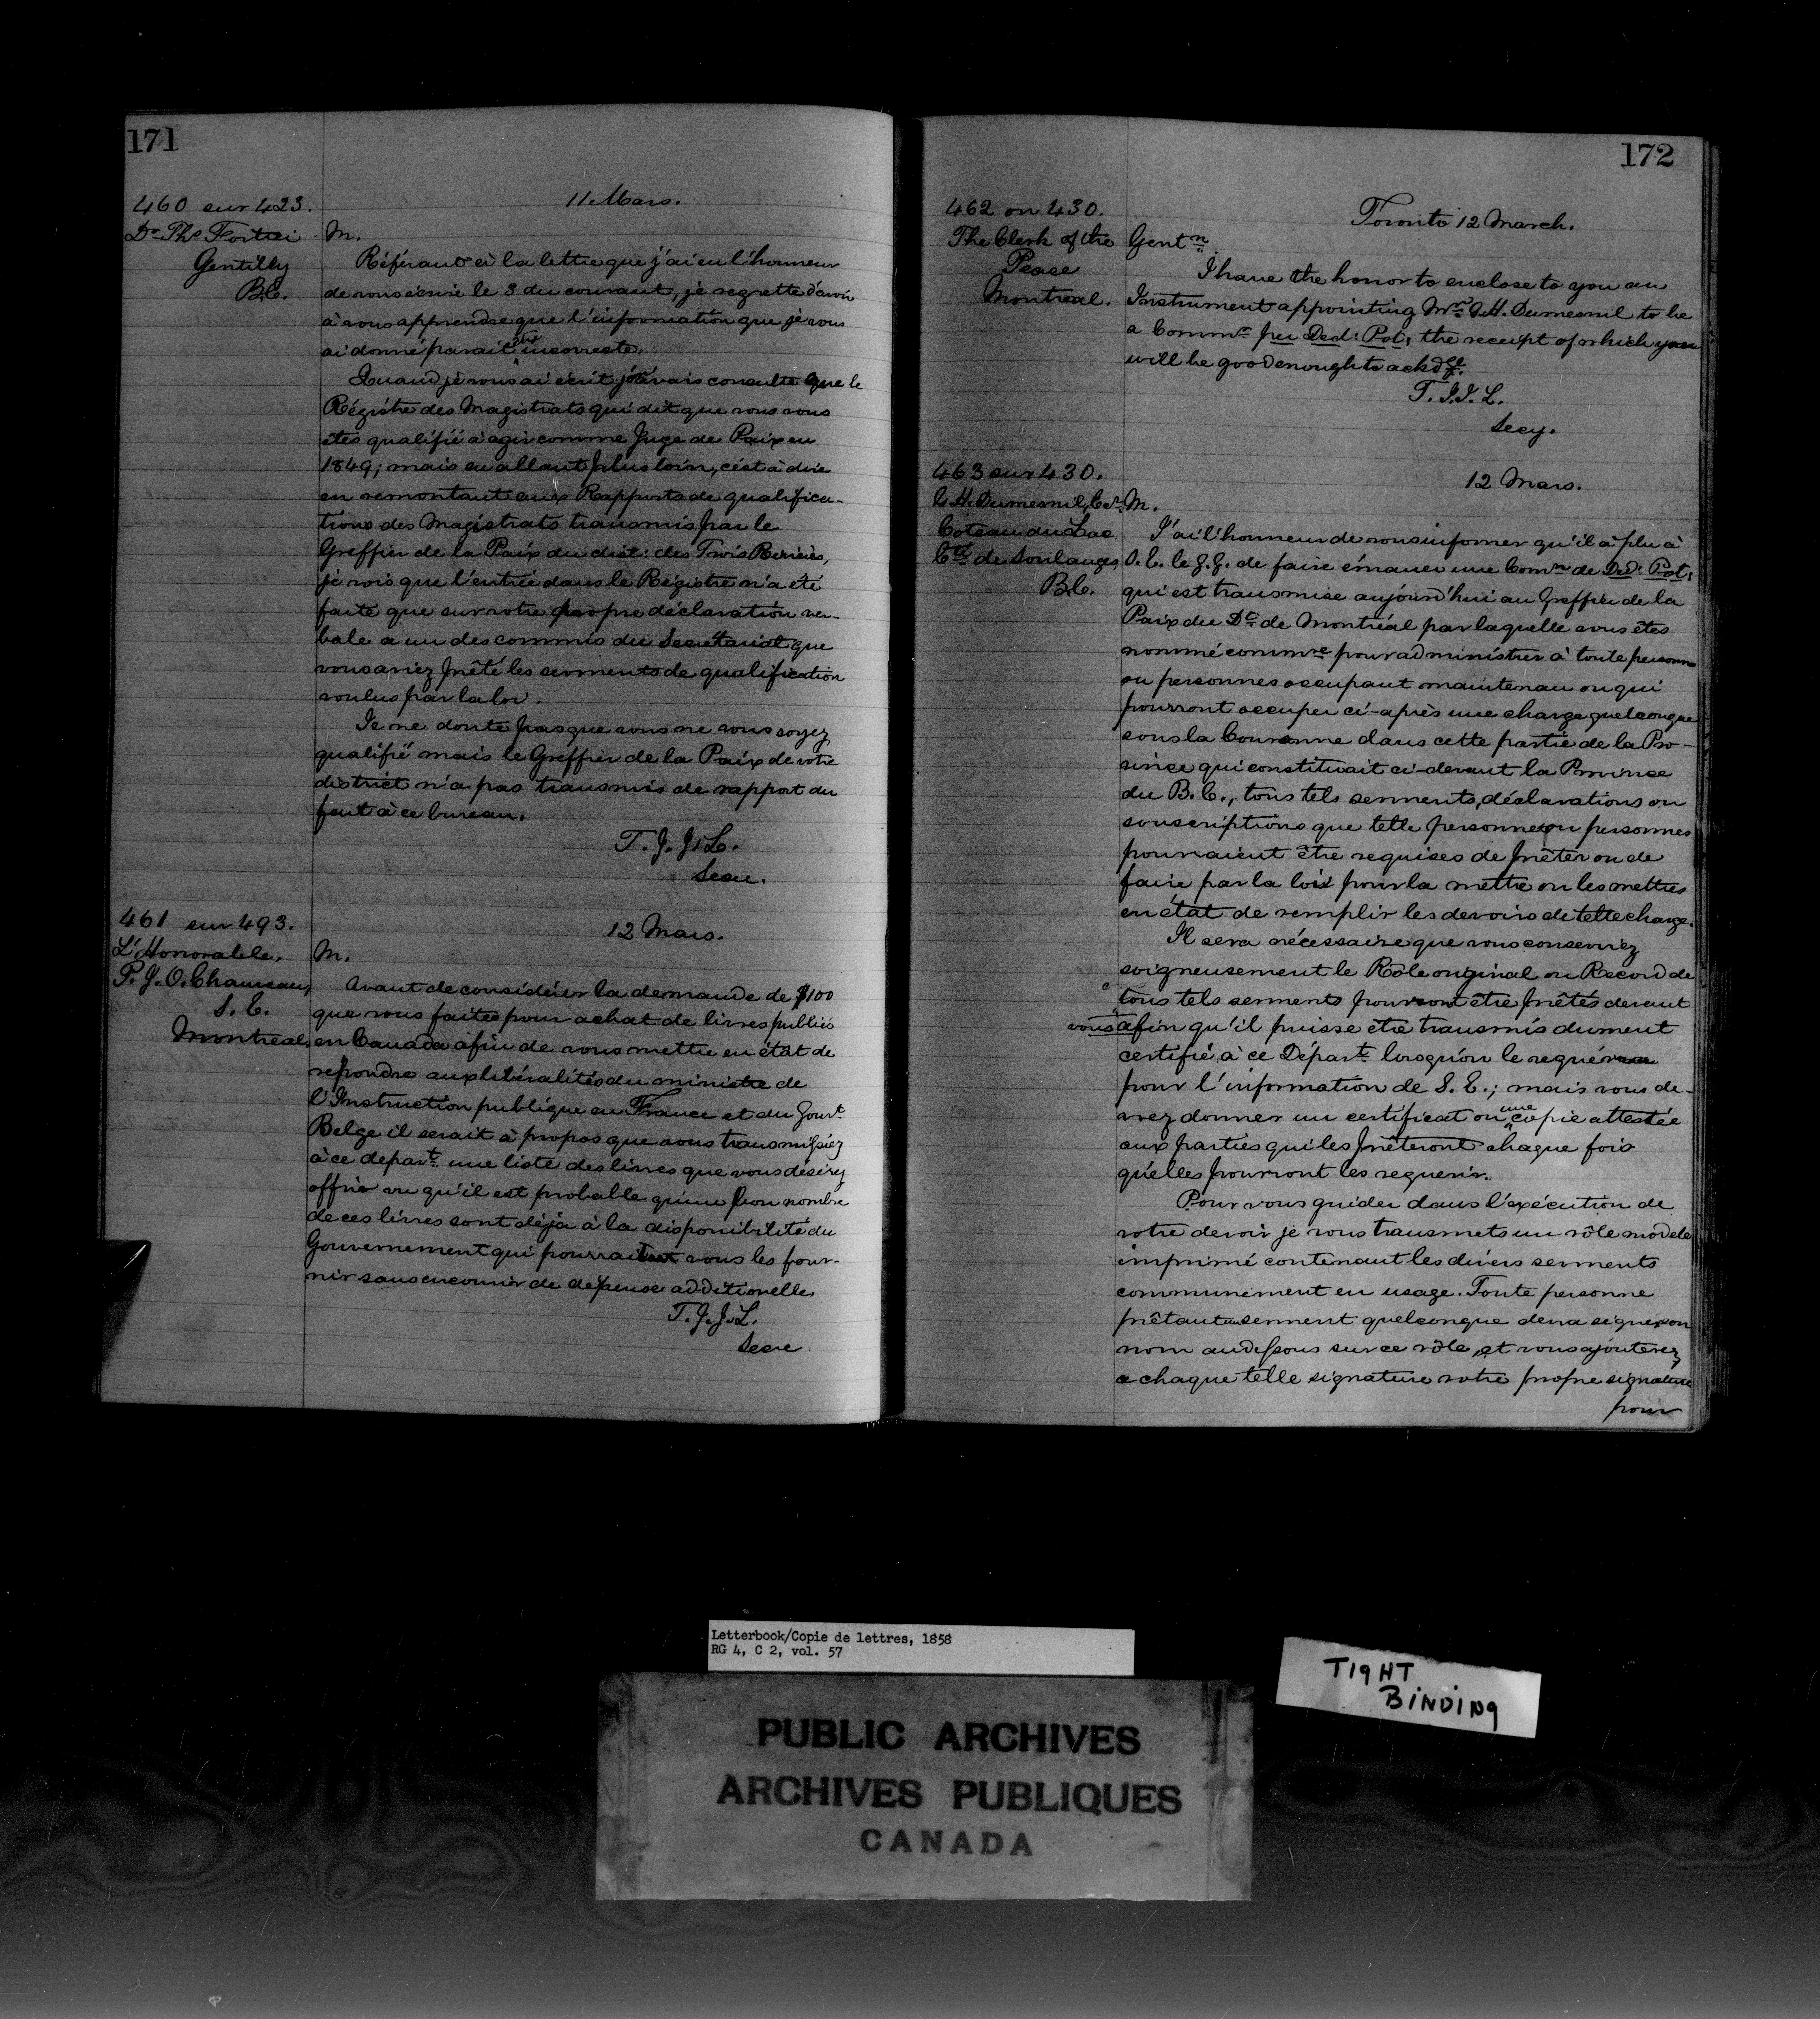 171
460 sur 423.
Dr Ths Fortier
Gentilly
B.C.
11 Mars.
M.
Référant à la lettre que j'ai eu l'honneur
de vous écrire le 3 du courant, je regrette d'avoir
à vous apprendre que l'information que je vous
ai donné parait être incorrecte.
Quand je vous ai écrit je n'avais consulté que le
Régistre des Magistrats qui dit que vous vous
êtes qualifié à agir comme Juge de Paix en
1849; mais en allant plus loin, c'est à dire
en remontant aux Rapports de qualifica-
tions des Magistrats transmis par le
Greffier de la Paix du dist: des Trois Rivières,
je vois que l'entrée dans le Régistre n'a été
faite que sur votre propre déclaration ver-
bale a un des commis du Secrétariat que
vous aviez prêté les serments de qualification
voulus par la loi.
Je ne doute pas que vous ne vous soyez
qualifié mais le Greffier de la Paix de votre
district n'a pas transmis de rapport du
fait à ce bureau.
T. J. J. L.
Secre.
461 sur 493.
L'Honorable,
P. J. O. Chauveau,
S. E.
Montreal.
12 Mars.
M.
Avant de considérer la demande de $100
que vous faites pour achat de livres publiés
en Canada afin de vous mettre en état de
repondre aux libéralités du ministre de
l'Instruction publique en France et du Gouvt
Belge il serait à propos que vous transmissiez
à ce depart. une liste des livres que vous désirez
offrir vu qu'il est probable qu'un bon nombre
de ces livres sont déjà à la disponibilité du
Gouvernement qui pourrait vous les four-
nir sans encourir de depense additionelle.
T. J. J. L.
Secre
172
462 on 430.
The Clerk of the
Peace
Montreal.
Toronto 12 March.
Gentn
I have the honor to enclose to you an
Instrument appointing Mr G. H. Dumesnil to be
a Commr per Ded: Pot: the receipt of which you
will be good enough to ackdge.
T. J. J. L.
Secy.
463 sur 430.
G. H. Dumesnil, Er
Coteau du Lac
Cté de Soulanges
B.C.
12 Mars.
M.
J'ai l'honneur de vous informer qu'il a plu à
S. E. le G. G. de faire émaner une Comn de Ded: Pot:
qui est transmise aujourd'hui au Greffier de la
Paix du Dt de Montréal par laquelle vous êtes
nommé commre pour administrer à toute personne
ou personnes occupant maintenan ou qui
pourront occuper ci-après une charge quelconque
sous la Couronne dans cette partie de la Pro-
vince qui constituait ci-devant la Province
du B. C., tous tels serments, déclarations ou
souscriptions que telle personne ou personnes
pourraient être requises de prêter ou de
faire par la loi pour la mettre ou les mettres
en état de remplir les devoirs de telle charge.
Il sera nécessaire que vous conserviez
soigneusement le Rôle original ou Record de
tous tels serments pourront être prêtés devant
vous afin qu'il puisse être transmis dument
certifié, à ce Départt lorsqu'on le requérra
pour l'information de S. E.; mais vous de-
vrez donner un certificat ou une copie attestée
aux parties qui les prêteront chaque fois
qu'elles pourront les requerir.
Pour vous guider dans l'exécution de
votre devoir je vous transmets un rôle modele
imprimé contenant les divers serments
communément en usage. Toute personne
prêtant un serment quelconque devra signer son
nom au dessous sur ce rôle, et vous ajouterez
a chaque telle signature votre propre signature
pour
Letterbook/Copie de lettres, 1858
RG 4, C 2, vol. 57
TIGHT
BINDING
PUBLIC ARCHIVES
ARCHIVES PUBLIQUES
CANADA